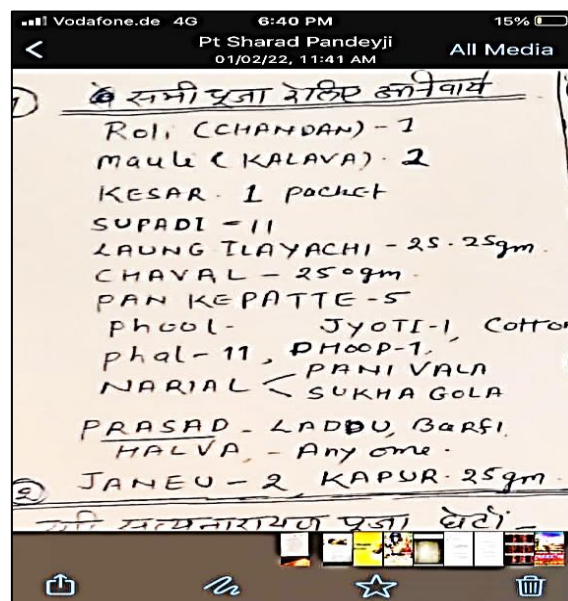 Vodafone.de 4G 6:40 PM 15%
Pt Sharad Pandeyji
01/02/22, 11:41 AM
All Media
1) सभी पूजा के लिए अनीवार्य
Roli (CHANDAN) - 1
maule (KALAVA). 2
KESAR. 1 packet
SUPADI - 11
LAUNG ILAYACHI - 25.25gm.
CHAVAL - 250gm.
PAN KEPATTE - 5
phool - JYOTI-1, Cotton
phal - 11, DHOOP-1,
NARIAL < PANI VALA
SUKHA GOLA
PRASAD - LADDU, BARFI.
HALVA, - Any one.
JANEU - 2 KAPUR. 25gm.
2) श्री सत्यनारायण पूजा